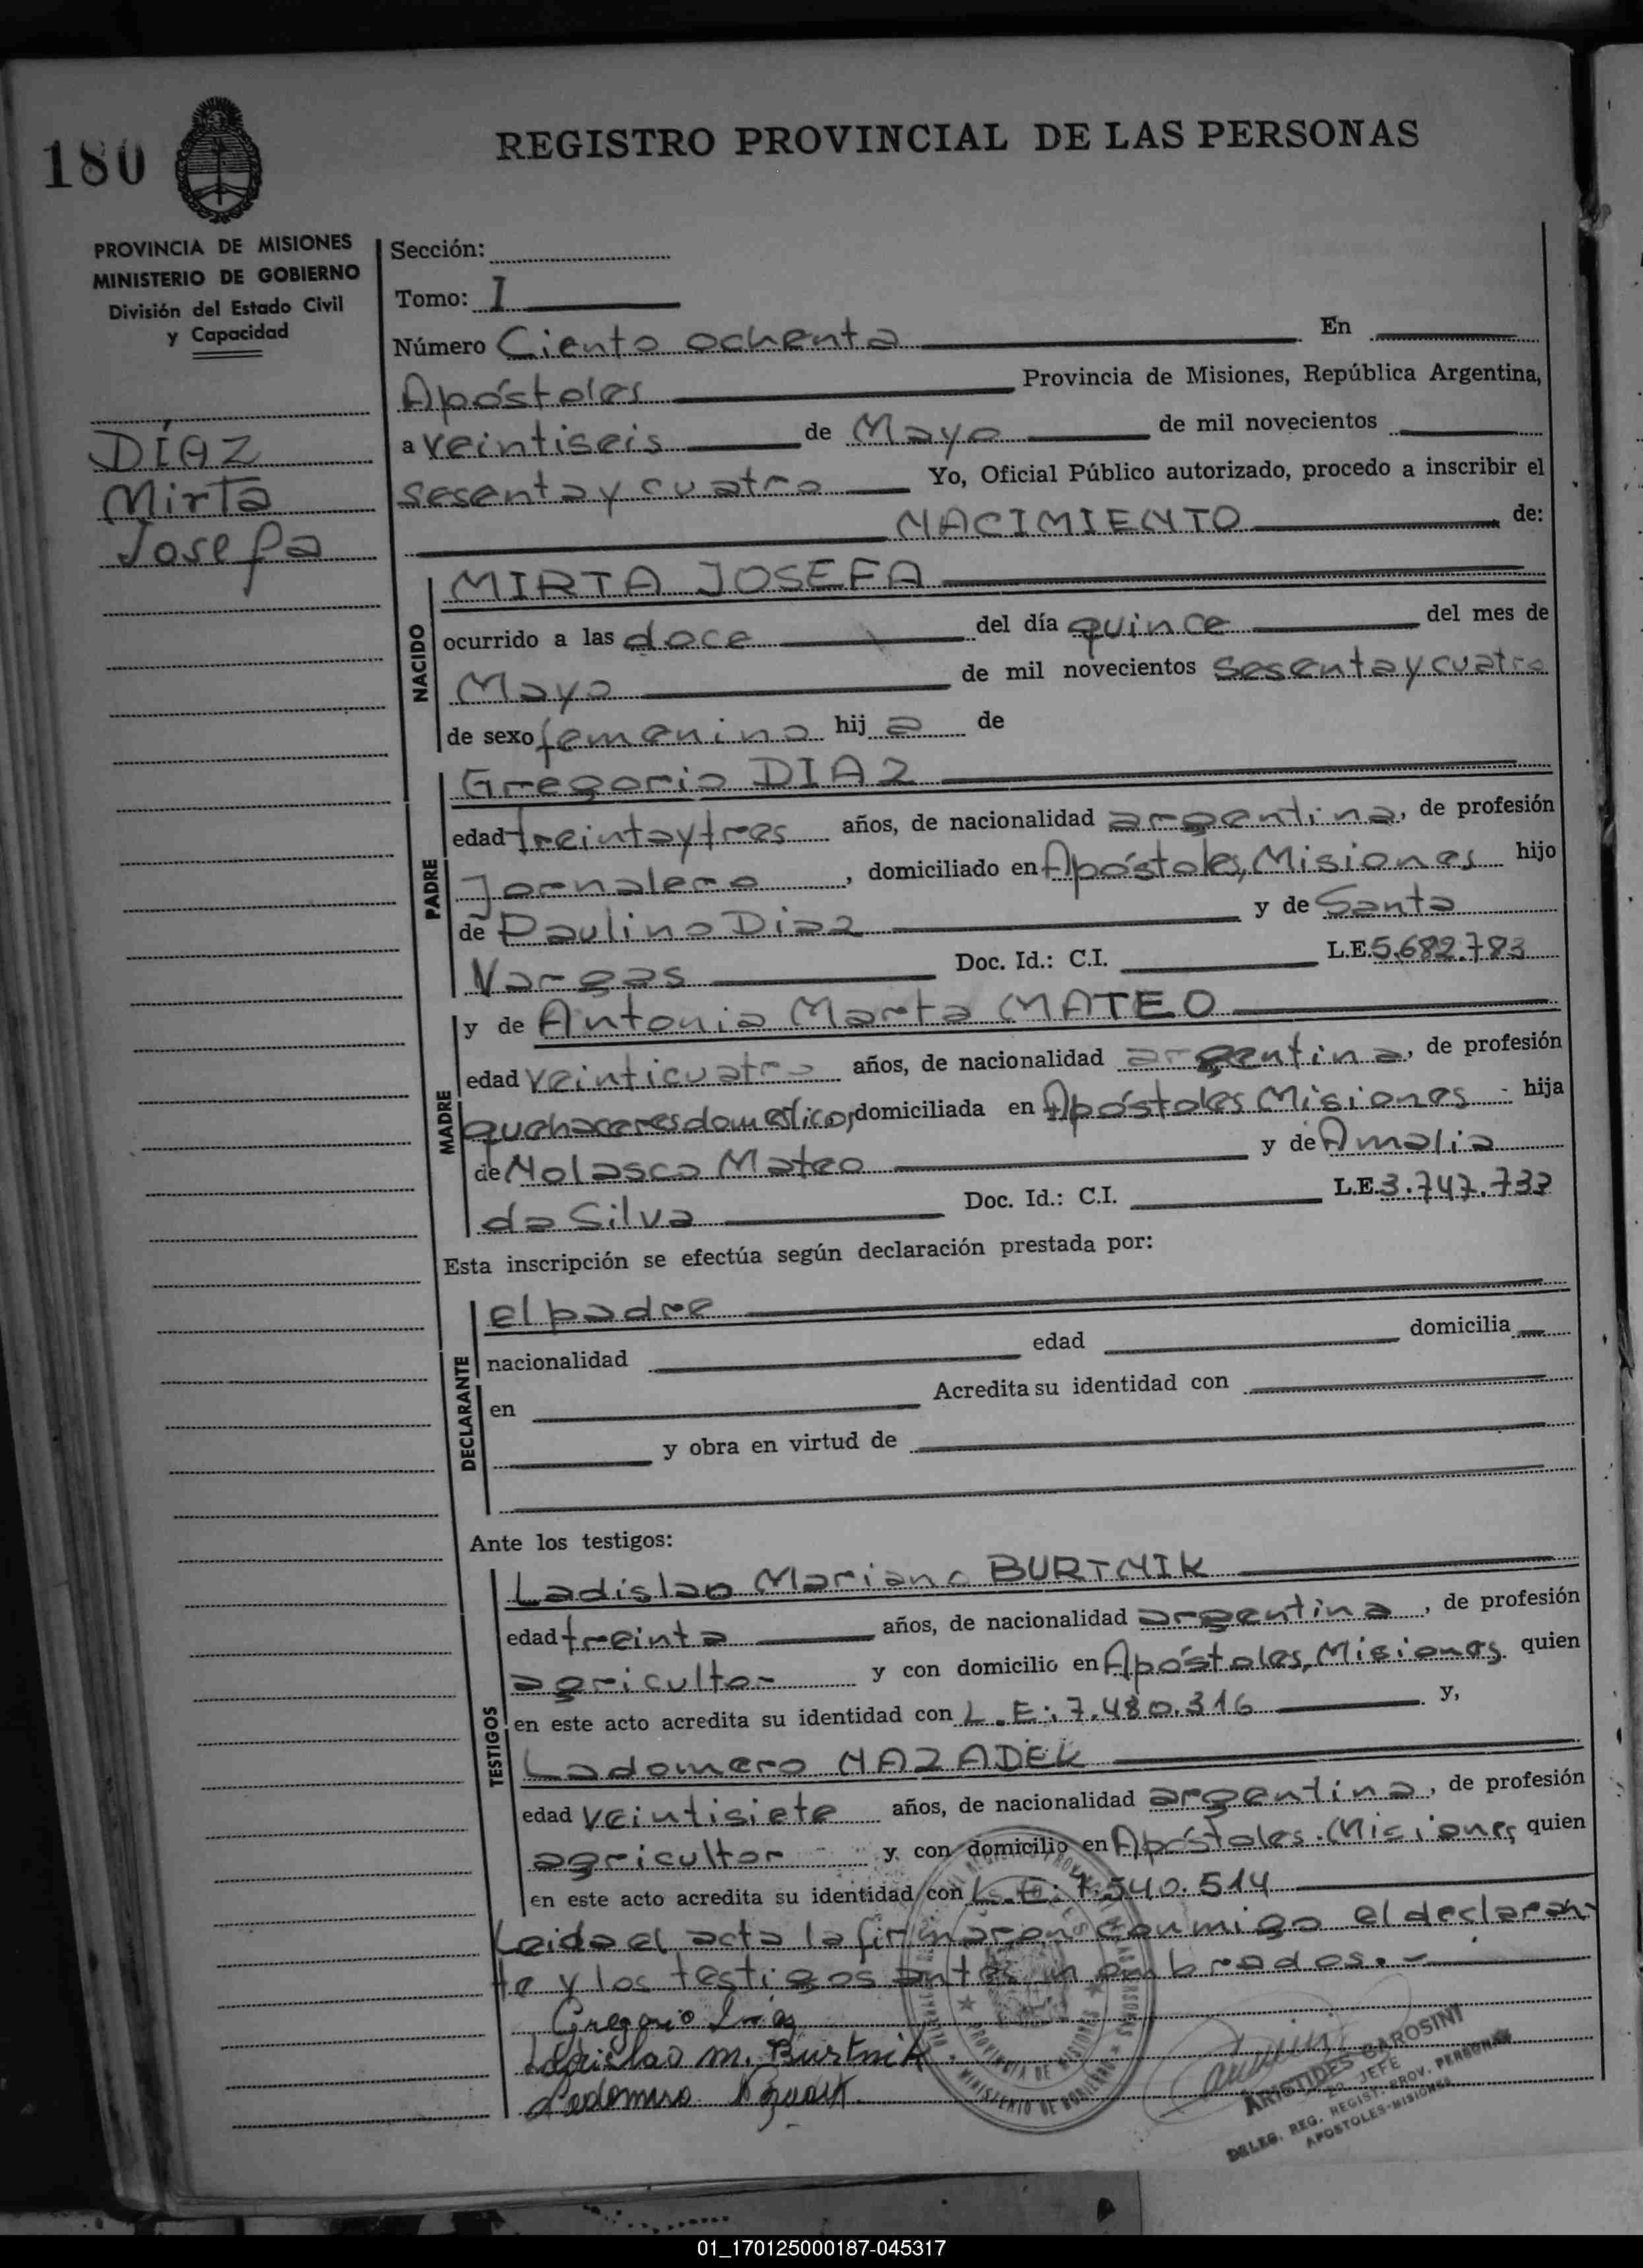 180
REGISTRO PROVINCIAL DE LAS PERSONAS
PROVINCIA DE MISIONES
MINISTERIO DE GOBIERNO
División del Estado Civil
y Capacidad
DÍAZ
Mirta
Josefa
Sección:
Tomo: I
Número Ciento ochenta En
Apóstoles Provincia de Misiones, República Argentina,
a veintiseis de Mayo de mil novecientos
sesenta y cuatro Yo, Oficial Público autorizado, procedo a inscribir el
NACIMIENTO de:
NACIDO
MIRTA JOSEFA
ocurrido a las doce del día quince del mes de
Mayo de mil novecientos sesenta y cuatro
de sexo femenino hija de
PADRE
Gregorio DIAZ
edad treinta y tres años, de nacionalidad argentina, de profesión
Jornalero, domiciliado en Apóstoles, Misiones hijo
de Paulino Diaz y de Santa
Vargas Doc. Id.: C.I. L.E. 5.682.783
MADRE
y de Antonia Marta MATEO
edad veinticuatro años, de nacionalidad argentina, de profesión
quehaceres domesticos, domiciliada en Apóstoles Misiones - hija
de Nolasco Mateo y de Amalia
da Silva Doc. Id.: C.I. L.E. 3.747.733
Esta inscripción se efectúa según declaración prestada por:
DECLARANTE
el padre
nacionalidad edad domicilia
en Acredita su identidad con
y obra en virtud de
Ante los testigos:
TESTIGOS
Ladislao Mariano BURTNIK
edad treinta años, de nacionalidad argentina, de profesión
agricultor y con domicilio en Apóstoles, Misiones quien
en este acto acredita su identidad con L.E: 7.480.316 y,
Ladomero NAZADEK
edad veintisiete años, de nacionalidad argentina, de profesión
agricultor y con domicilio en Apóstoles. Misiones quien
en este acto acredita su identidad con L.E: 7.540.514
Leida el acta la firmaron conmigo el declaran-
te y los testigos antes nombrados.-
Gregorio Diaz
Ladislao M. Burtnik
PROVINCIA DE MISIONES
MINISTERIO DE GOBIERNO
ARISTIDES GAROSINI
JEFE
DELEG. REG. REGIST. PROV. PERSONAS
APOSTOLES-MISIONES
01_170125000187-045317